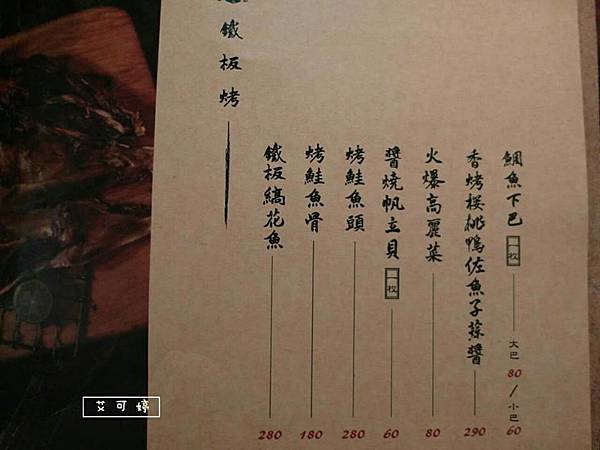 鐵板烤
鯛魚下巴 一枚 大巴 80 / 小巴 60
香烤櫻桃鴨佐魚子蒜醬 290
火爆高麗菜 80
醬燒帆立貝 一枚 60
烤鮭魚頭 280
烤鮭魚骨 180
鐵板縞花魚 280
艾可婷